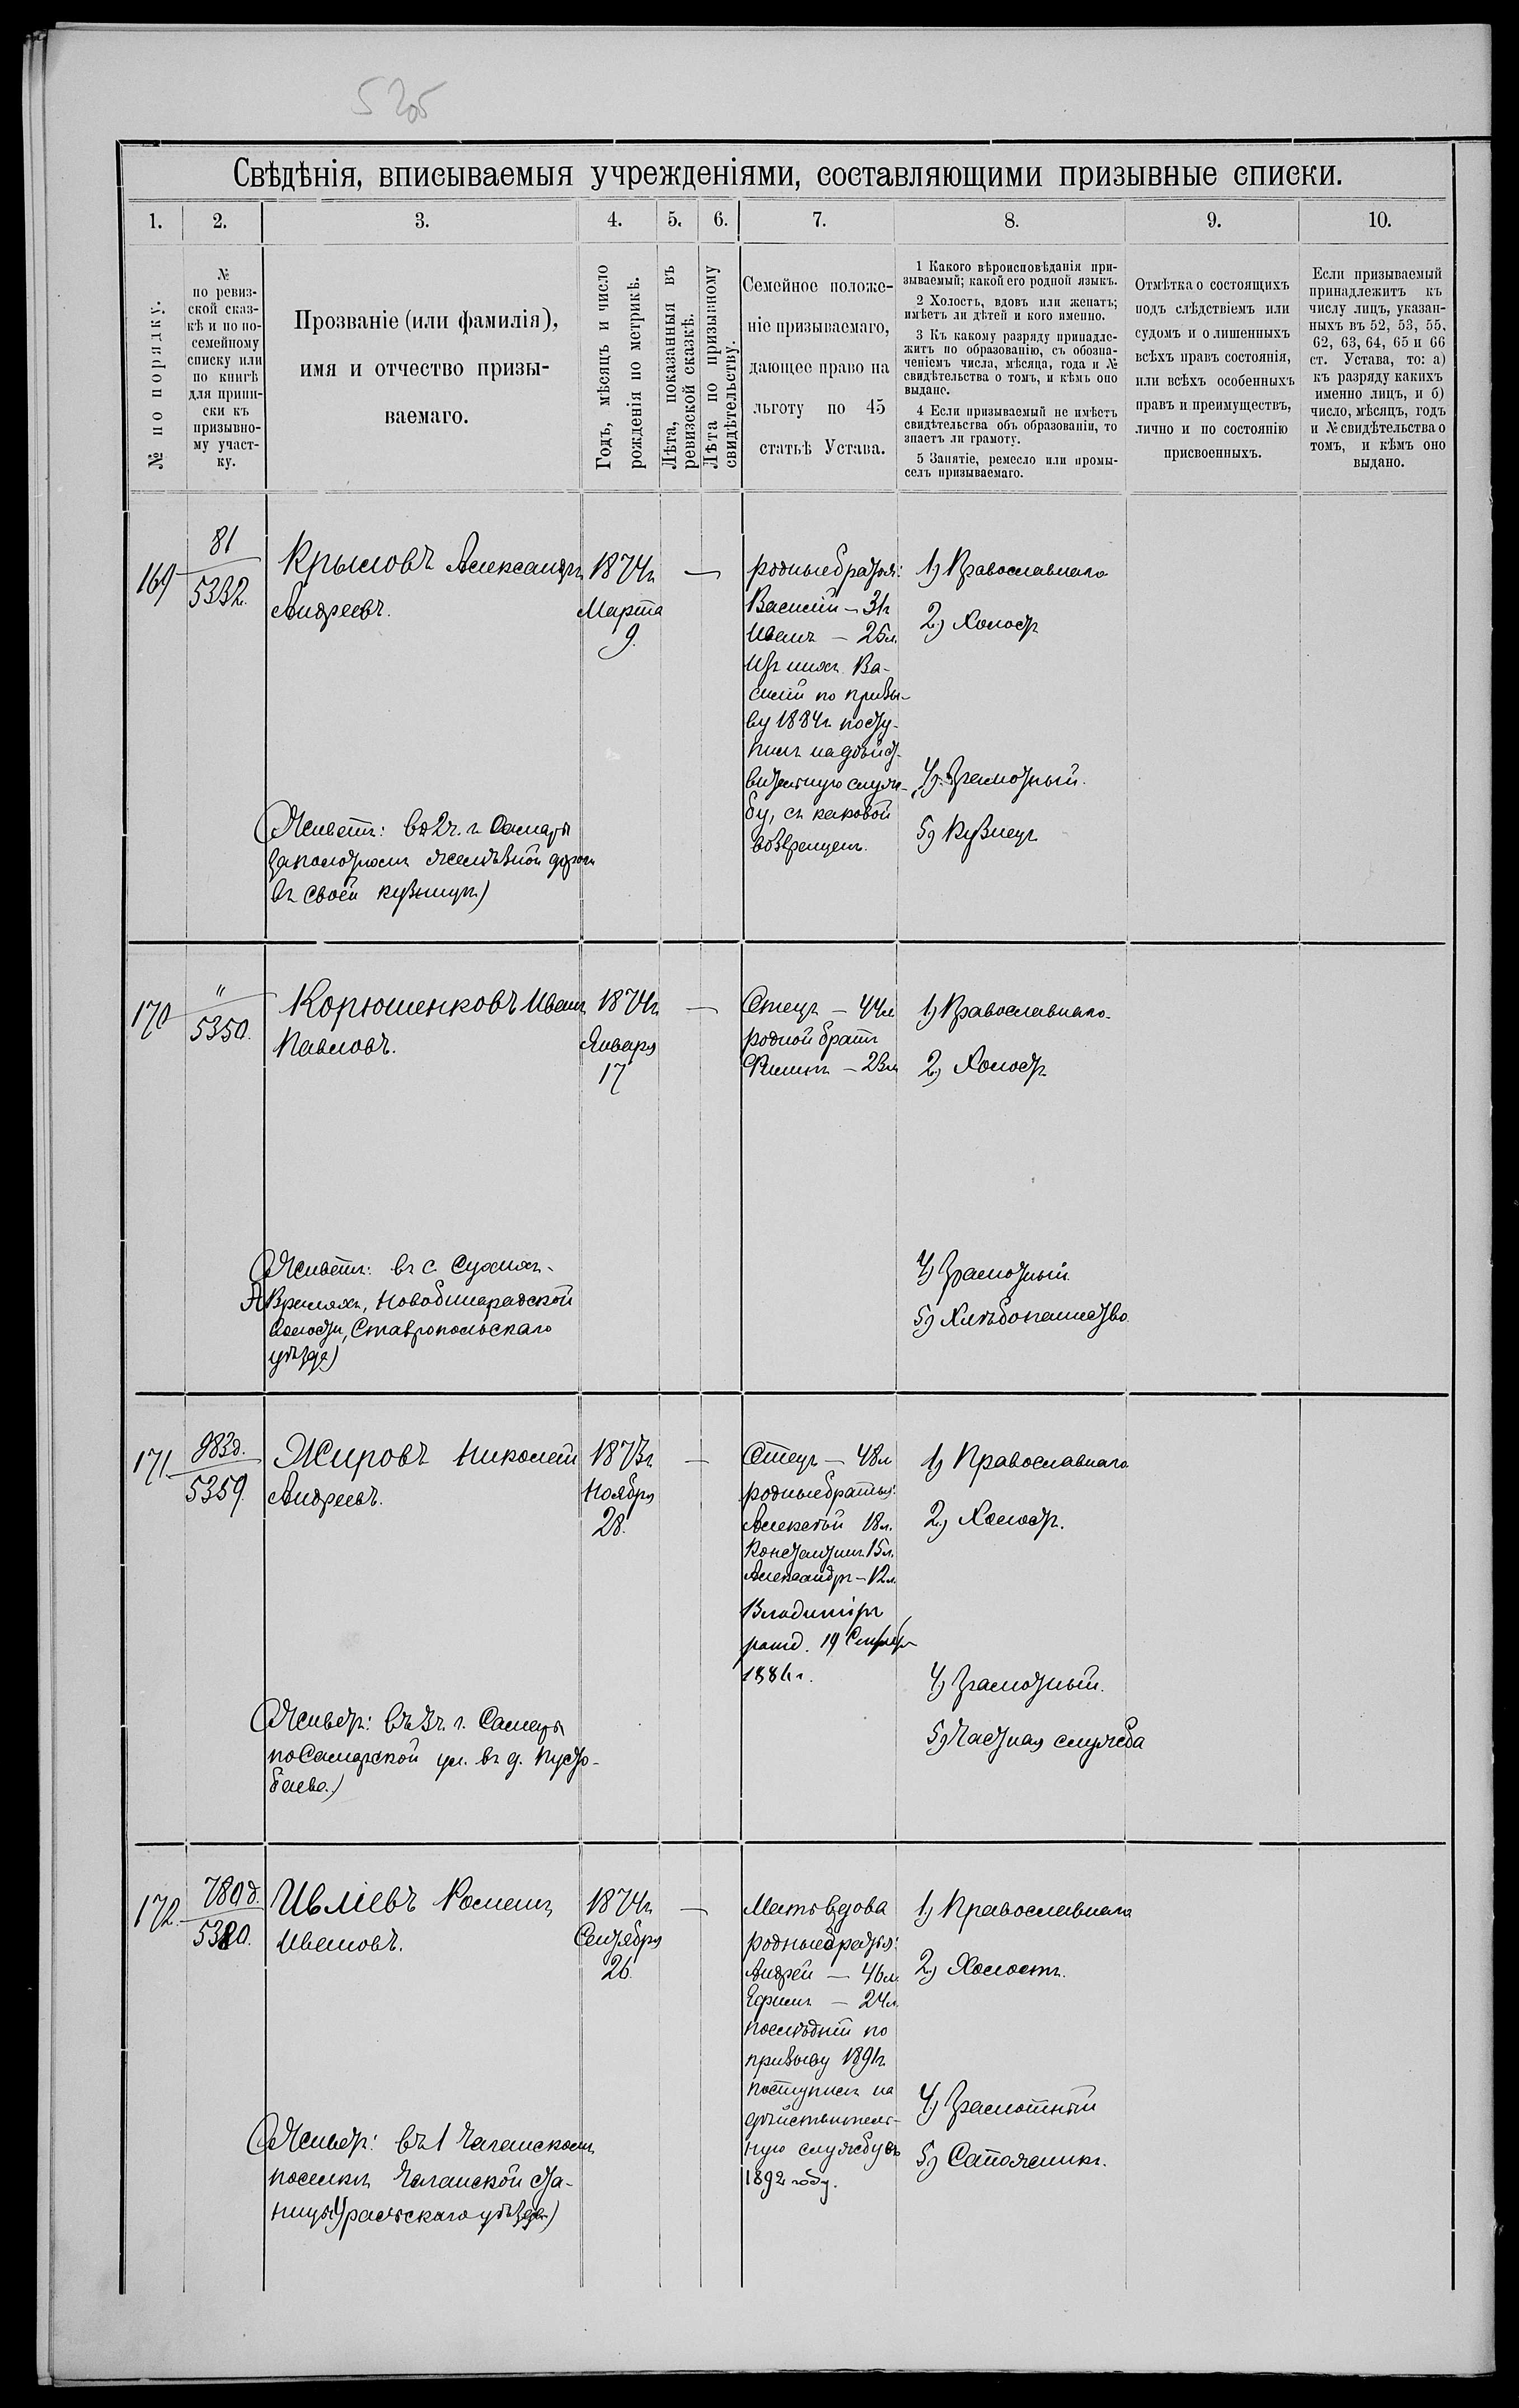 5205
Свѣдѣнія, вписываемыя учрежденіями, составляющими призывные списки.
1. 2. 3. 4. 5. 6. 7. 8. 9. 10.
№ по порядку.
№
по ревиз-
ской сказ-
кѣ и по по-
семейному
списку или
по книгѣ
для припи-
ски къ
призывно-
му участ-
ку.
Прозваніе (или фамилія),
имя и отчество призы-
ваемаго.
Годъ, мѣсяцъ и число
рожденія по метрикѣ.
Лѣта, показанныя въ
ревизской сказкѣ.
Лѣта по призывному
свидѣтельству.
Семейное положе-
ніе призываемаго,
дающее право на
льготу по 45
статьѣ Устава.
1 Какого вѣроисповѣданія при-
зываемый; какой его родной языкъ.
2 Холостъ, вдовъ или женатъ;
имѣетъ ли дѣтей и кого именно.
3 Къ какому разряду принадле-
житъ по образованію, съ обозна-
ченіемъ числа, мѣсяца, года и №
свидѣтельства о томъ, и кѣмъ оно
выдано.
4 Если призываемый не имѣетъ
свидѣтельства объ образованіи, то
знаетъ ли грамоту.
5 Занятіе, ремесло или промы-
селъ призываемаго.
Отмѣтка о состоящихъ
подъ слѣдствіемъ или
судомъ и о лишенныхъ
всѣхъ правъ состоянія,
или всѣхъ особенныхъ
правъ и преимуществъ,
лично и по состоянію
присвоенныхъ.
Если призываемый
принадлежитъ къ
числу лицъ, указан-
ныхъ въ 52, 53, 55,
62, 63, 64, 65 и 66
ст. Устава, то: а)
къ разряду какихъ
именно лицъ, и б)
число, мѣсяцъ, годъ
и № свидѣтельства о
томъ, и кѣмъ оно
выдано.
169
81
5332.
Крыловъ Александръ
Андреевъ.
(Живетъ: во 2 ч. г. Самары
за полотномъ желѣзной дороги
въ своей кузницѣ)
1874 г.
Марта
9.
—
родные братья:
Василій — 31 г.
Иванъ — 25 л.
Изъ нихъ Ва-
силій по призы-
ву 1884 г. посту-
пилъ на дѣйст-
вительную служ-
бу, съ каковой
возвращенъ.
1) Православнаго
2) Холостъ
4) Грамотный.
5) Кузнецъ
170
"
5350.
Корюшенковъ Иванъ
Павловъ.
(Живетъ: въ с. Сухихъ-
Аврaляхъ, Новобинарадской
волости, Ставропольскаго
уѣзда)
1874 г.
Января
17
—
Отецъ — 44 л.
родной братъ
Филипъ — 23 л.
1) Православнаго.
2) Холостъ
4) Грамотный.
5) Хлѣбопашество.
171
983 д.
5359.
Жировъ Николай
Андреевъ.
(Живетъ: въ 3 ч. г. Самары
по Самарской ул. въ д. Пусто-
баева.)
1873 г.
Ноября
28.
—
Отецъ — 48 л.
родные братья:
Алексѣй 18 л.
Константинъ 15 л.
Александръ — 12 л.
Владиміръ
ражд. 19 Сентяб.
1886 г.
1) Православнаго
2) Холостъ.
4) Грамотный.
5) Частная служба
172.
780 д.
5380.
Ивліевъ Романъ
Ивановъ.
(Живетъ: въ 1 Чаганскомъ
поселкѣ Чаганской ста-
ницы Уральскаго уѣзда)
1874 г.
Сентября
26.
—
Мать вдова
родные братья:
Андрей — 46 л.
Ефимъ — 24 л.
послѣдній по
призыву 1891 г.
поступилъ на
дѣйствитель-
ную службу въ
1892 году.
1) Православнаго
2) Холостъ.
4) Грамотный
5) Сапожникъ.